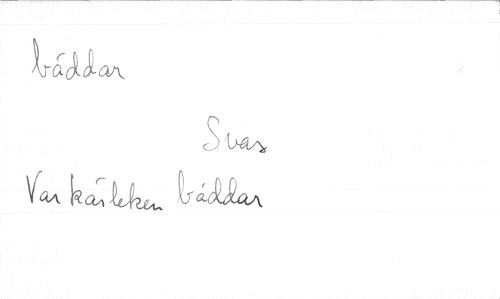 båddar
Svar
Var kärleken båddar